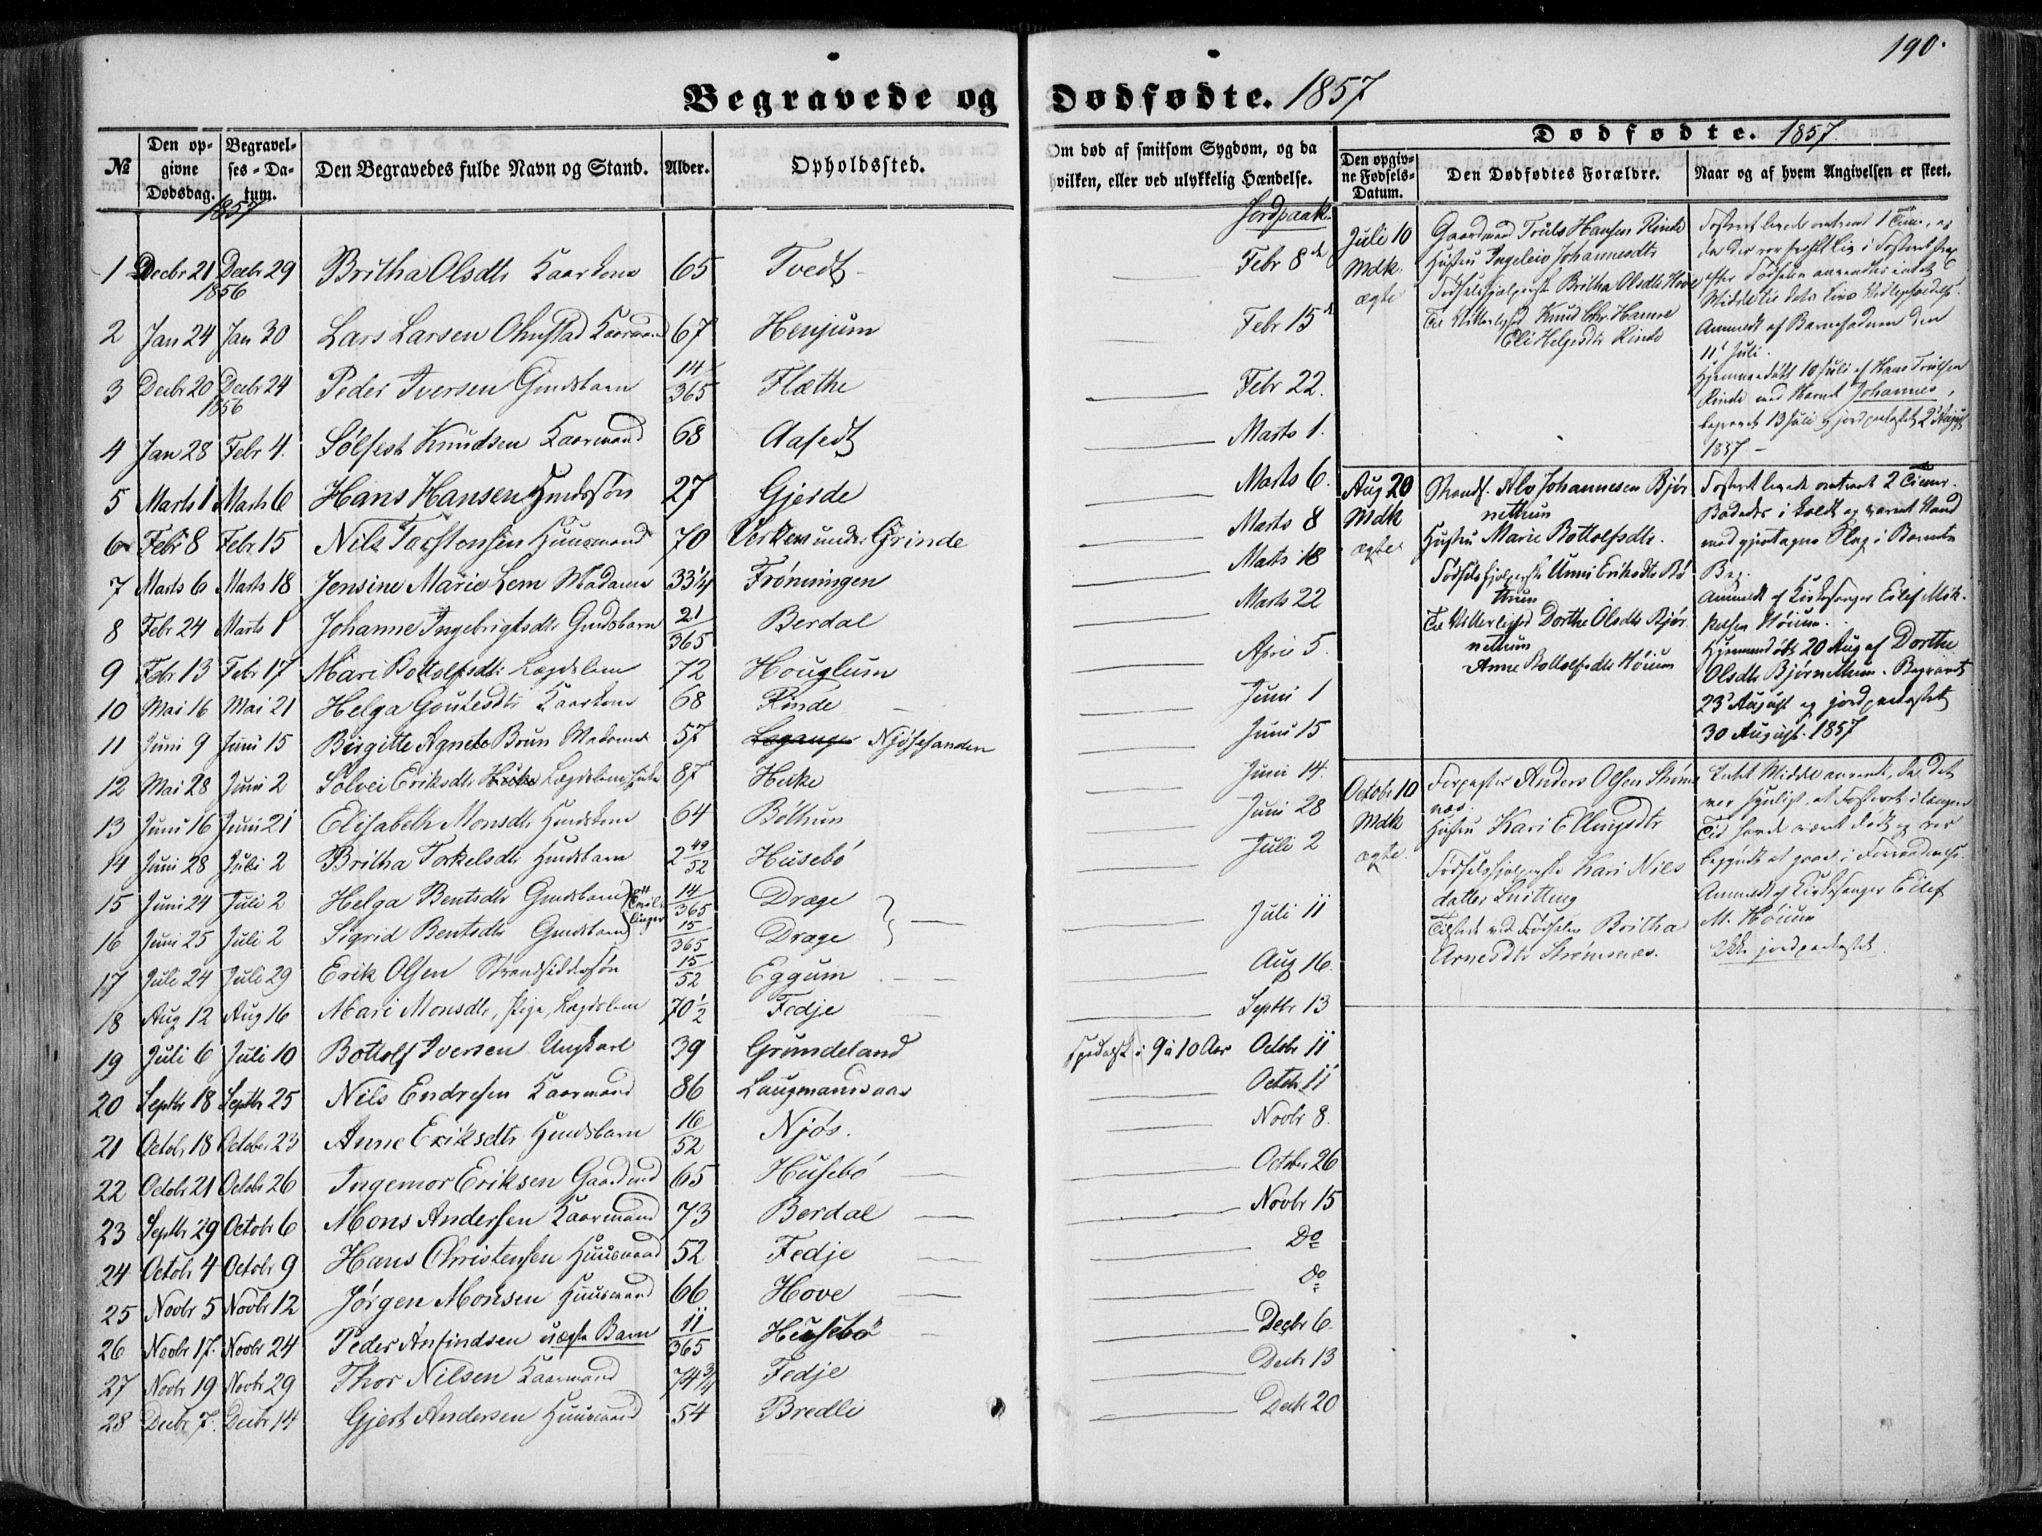 190.
Begravede og Dødfødte. 1857
№ Den opgivne Dødsdag. Begravelses-Datum. Den Begravedes fulde Navn og Stand. Alder. Opholdssted. Om død af smitsom Sygdom, og da hvilken, eller ved ulykkelig Hændelse.
1857 Jordpaak.
1 Decbr 21 Decbr 29 Britha Olsdtr Kaarkone 65 Tvedt Febr 8d
1856
2 Jan 24 Jan 30 Lars Larsen Ohnstad Kaarmand 67 Henjum Febr 15d
3 Decbr 20 Decbr 24 Peder Iversen Gmdsbarn 14/365 Flæthe Febr 22.
1856
4 Jan 28 Febr 4. Sølfest Knudsen Kaarmand 68 Aafedt Marts 1.
5 Marts 1 Marts 6 Hans Hansen Hmdssøn 27 Gjerde Marts 6.
6 Febr 8 Febr 15 Nils Torstensen Huusmand 70 Verken under Grinde Marts 8
7 Marts 6 Marts 18 Jensine Marie Lem Madame 33 1/4 Frønningen Marts 18
8 Febr 24 Marts 1 Johanne Ingebrigtsdtr Gmdsbarn 21/365 Berdal Marts 22
9 Febr 13 Febr 17 Mari Bottolfsdtr Lægdslem 72 Houglum April 5.
10 Mai 16 Mai 21 Helga Goutesdtr Kaarkone 68 Rinde Juni 1
11 Juni 9 Juni 15 Birgitte Agnete Brun Madame 57 Leganger Njøsesanden Juni 15
12 Mai 28 Juni 2 Sølvei Eriksdtr Huke Lægdslem 87 Huke Juni 14.
13 Juni 16 Juni 21 Elisabeth Monsdtr Hmdskone 64 Bøthun Juni 28
14 Juni 28 Juli 2 Britha Torkelsdtr Hmdsbarn 2 49/52 Husebø Juli 2
15 Juni 24 Juli 2 Helga Bentsdtr Gmdsbarn 14/365 Drage
Tvillinger Juli 11
16 Juni 25 Juli 2 Sigrid Bentsdtr Gmdsbarn 15/365 Drage
17 Juli 24 Juli 29 Erik Olsen Strandsiddersøn 15/52 Eggum Aug 16.
18 Aug 12 Aug 16 Mari Monsdtr, Pige, Lægdslem 70 1/2 Fedje Septbr 13
19 Juli 6 Juli 10 Bottolf Iversen Ungkarl 39 Grundeland Spedalsk i 9 à 10 Aar Octobr 11
20 Septbr 18 Septbr 25 Nils Endresen Kaarmand 86 Laugmansaas Octobr 11
21 Octobr 18 October 23 Anne Eriksdtr Hmdsbarn 16/52 Njøs. Novbr 8.
22 Octobr 21 Octobr 26 Ingemor Eriksen Gaardmd 65 Husebø October 26
23 Septbr 29 Octobr 6 Mons Andersen Kaarmand 73 Berdal Novbr 15
24 Octobr 4 Octobr 9 Hans Christensen Huusmand 52 Fedje Do
25 Novbr 5 Novbr 12 Jørgen Monsen Huusmand 66 Hove do
26 Novbr 17. Novbr 24 Peder Anfindsen uægte Barn 11/365 Husebø Decbr 6.
27 Novbr 19 Novbr 29 Thor Nilsen Kaarmand 74 3/4 Fedje Decbr 13
28 Decbr 7. Decbr 14 Gjert Andersen Huusmand 54 Bredli Decbr 20
Dødfødte. 1857.
Den opgivne Fødsels-Datum. Den Dødfødtes Forældre. Naar og af hvem Angivelsen er skeet.
Juli 10
Mdk.
ægte
Gaardmand Truls Hansen Rinde
Hustru Ingeleiv Johannesdtr
Fødselshjelperske Britha Olsdtr Hove
Til Vitterlighed Knud Chr. Hamre
Eli Helgesdtr Rinde
Fosteret levede omtrent 1 Time, og
da der var
efter Fødselen anvendtes intet
Middel til dets Livs Vedligeholdelse.
Anmeldt af Barnefaderen den
11te Juli.
Hjemmedøbt 10 Juli af Hans Trulsen
Rinde ved Navnet Johannes,
begravet 13 Juli, jordpaakastet 2 August
1857 -
Aug 20
Mdk
ægte
Strands. Alv Johannesen Bjør
nettum
Hustru Marie Bottolfsdtr.
Fødselshjelperske Anni Eriksdtr Bø
thun
Til Vitterlighed Dorthe Olsdtr Bjør
nettum
Anne Bottolfsdtr Høium
Fosteret levede omtrent 2 Timer.
Badedes i koldt og varmt Vand
med gjentagne Slag i Barnets
Bag.
Anmeldt af Kirkesanger Eilef Mik-
kelsen Høium.
Hjemmedøbt 20 Aug af Dorthe
Olsdtr Bjørnettum. Begravet
23d August og jordpaakastet
30 August 1857
October 10
Mdk
ægte.
Forpagter Anders Olsen Strøms
næs.
Hustru Kari Ellingsdtr
Fødselshjelperske Kari Nils
datter Snitting
Tilstede ved Fødselen Britha
Arnesdtr Strømsnæs.
Intet Middel anvendt, da det
var synligt, at Fosteret i længere
Tid havde været dødt og var
begyndt at gaae i Forraadnelse.
Anmeldt af Kirkesanger Eilef
M. Høium
Ikke jordpaakastet.